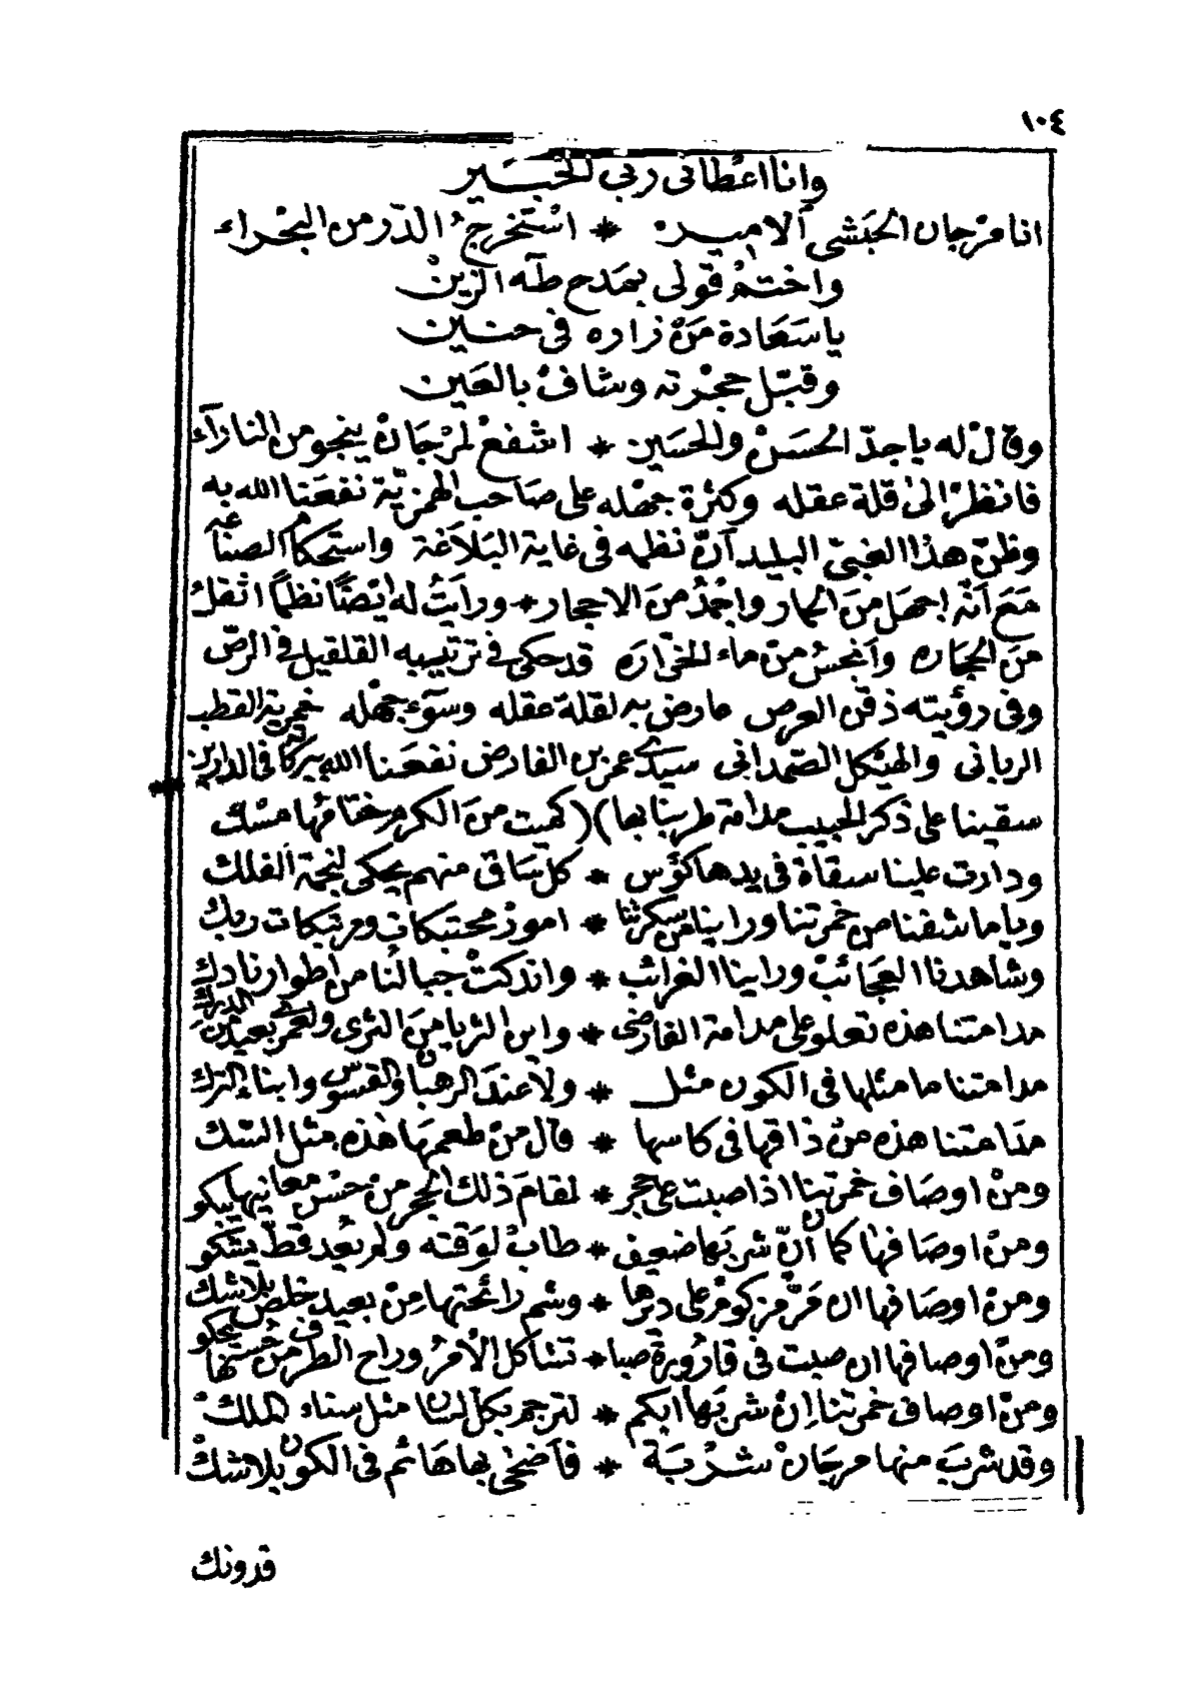 ١٠٤
وانا اعْطانى ربي الخبَير
انا مرْجان الحبَشى الامير * اسْتخرجُ الدّر من البْحراء
واختمْ قولى بمَدح طٓه الزينْ
ياسَعَادة مَنْ زاره فى حنين
وقبّل حجْرته وشافْ بالعَين
وقالْ له ياجدّ الحسَنْ والحسَين * اشفعْ لمرْجَانْ ينجو من النارآء
فانظرْ الىٰ قلة عقله وكثرة جهْله على صَاحب الهمزيّة نفعَنا الله به
وظنّ هذا الغبىّ البليد آنّ نظمه فى غاية البَلاَغة واستحكام الصناعه
مَعَ اَنّه اجهَل منَ الحمار واجْمدُ منَ الاحجار * ورايتُ له ايْضًا نظمًا اثقلْ
منَ الحجَاره وأنحسُ منْ ماء الخرّاره قد حكى فى ترتيبه القلقيل فى الرصّ
وفى رؤيته ذقن العرص عارض به لقلة عقله وسوٓء جهْله خمرية القطب
الربانى والهيْكل الصّمدانى سيدى عمر بن الفارض نفعَنا الله ببركاته فى الدارين
سقينا على ذكر الحبيب مدامة طربنا بها)(كميت منَ الكرم ختامُها مسْك
ودارت علينا سقاة فى يدها كؤس * كل سَاقى منهم يحكى لنجمة الفلك
وياما شفنا من خمرتنا وراينا من سكرتنا * امورْ محتبكات ومرتبكات ربك
وشاهدنا العجَائبْ وراينا الغرائب * واندكتْ جبالُنا من اطوارنا دك
مدامتنا هذه تعلو على مدامة الفارضى * واين الثريا منَ الثرى ولعمرى بعيد منَ الدرك
مدامتنا ما مثلها فى الكون مثل * ولاَ عندَ الرهبان والقسوس وابناء الترك
مدَامتنا هذه منْ ذاقها فى كاسها * قال منْ طعمهَا هٰذه مثل السّك
ومنْ اوصَاف خمرتنا اذا صبت على حجر * لقامَ ذلك الحجر من حسْن معانيها يبكو
ومنْ اوصَافها كما أنّ شربَها ضعيف * طابْ لوَقته ولم يعُد قطّ يشكو
ومنْ اوصَافها ان مَرّ مزكومْ على ديرْها * وشم رائحتها منْ بعيد خلص بلاشك
ومنْ اوصافها ان صبت فى قارُورة صبا * تشاكل الأمْرُ وراح الطرف من حسنها يحكو
ومنْ اوصاف خمرتنا إنْ شربَها ابكم * لترجم بكل لسَان مثل سناء الملكْ
وقد شربَ منها مرجَانْ شرْبَة * فأضحٰى بها هَائم فى الكون بلاشكْ
قدونك